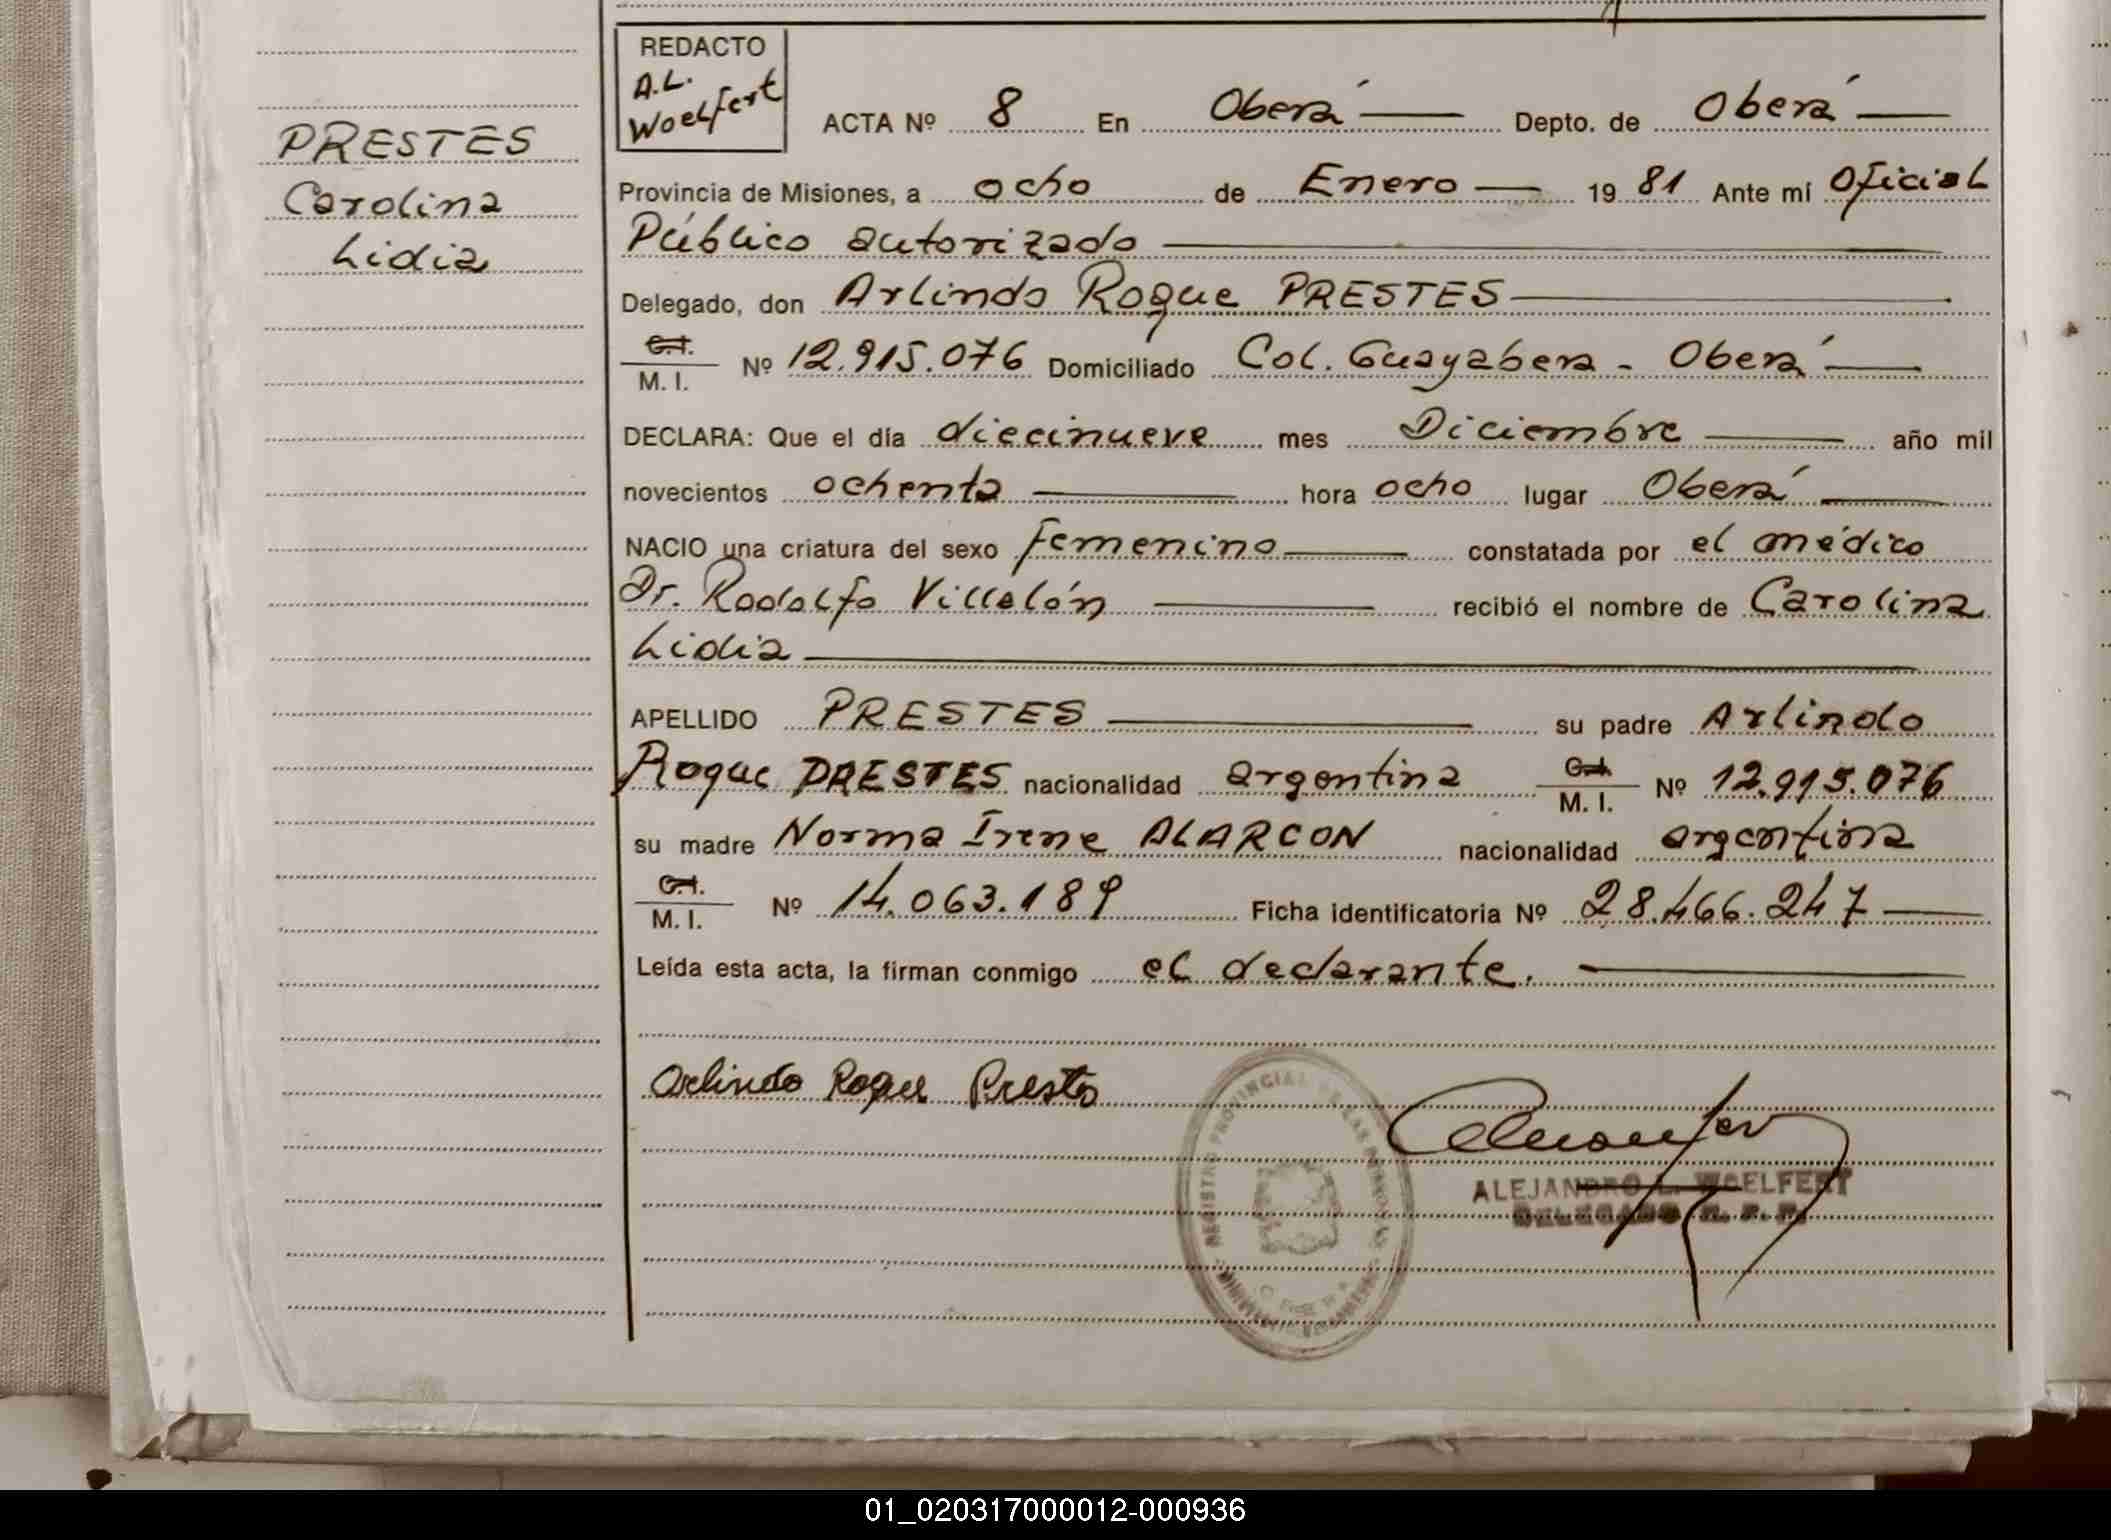 PRESTES
Carolina
Lidia
REDACTO
A.L.
Woelfert
ACTA Nº 8 En Oberá Depto. de Oberá
Provincia de Misiones, a ocho de Enero 1981 Ante mí Oficial
Público autorizado
Delegado, don Arlindo Roque PRESTES
C.I.
M. I. Nº 12.915.076 Domiciliado Col. Guayabera - Oberá
DECLARA: Que el día diecinueve mes Diciembre año mil
novecientos ochenta hora ocho lugar Oberá
NACIO una criatura del sexo femenino constatada por el médico
Dr. Rodolfo Villalón recibió el nombre de Carolina
Lidia
APELLIDO PRESTES su padre Arlindo
Roque PRESTES nacionalidad argentina C.I. M. I. Nº 12.915.076
su madre Norma Irene ALARCON nacionalidad argentina
C.I.
M. I. Nº 14.063.189 Ficha identificatoria Nº 28.466.247
Leída esta acta, la firman conmigo el declarante.
Arlindo Roque Prestes
REGISTRO PROVINCIAL DE LAS PERSONAS
ALEJANDRO L. WOELFERT
DELEGADO R. P. P.
01_020317000012-000936